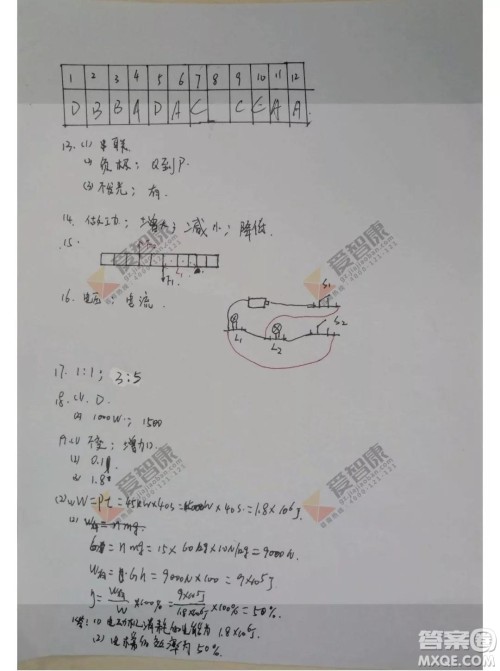 1 2 3 4 5 6 7 8 9 10 11 12
D B B A D A C C C A A
13. (1) 串联
(2) 负极; Q到P.
(3) 不发光; 有
14. 做功; 增大; 减小; 降低.
15.
F₁
16. 电压; 电流
S₁
L₁ L₂ S₂
17. 1:1; 3:5
18. (1) D.
(2) 1000W; 1500
(1) 不变; 增加
(2) 0.1
1.8
(2) (1) W=Pt=45kW×40s=45000W×40s=1.8×10⁶J
(2) W有=nmg
G=nmg=15×60kg×10N/kg=9000N
W有=Gh=9000N×100=9×10⁵J
η=W有/W×100%=9×10⁵J/1.8×10⁶J×100%=50%
答: (1) 电动机消耗的电能为1.8×10⁶J
(2) 电梯的效率为50%
爱智康
爱智康
爱智康
爱智康
爱智康
答案圈
MXQE.COM